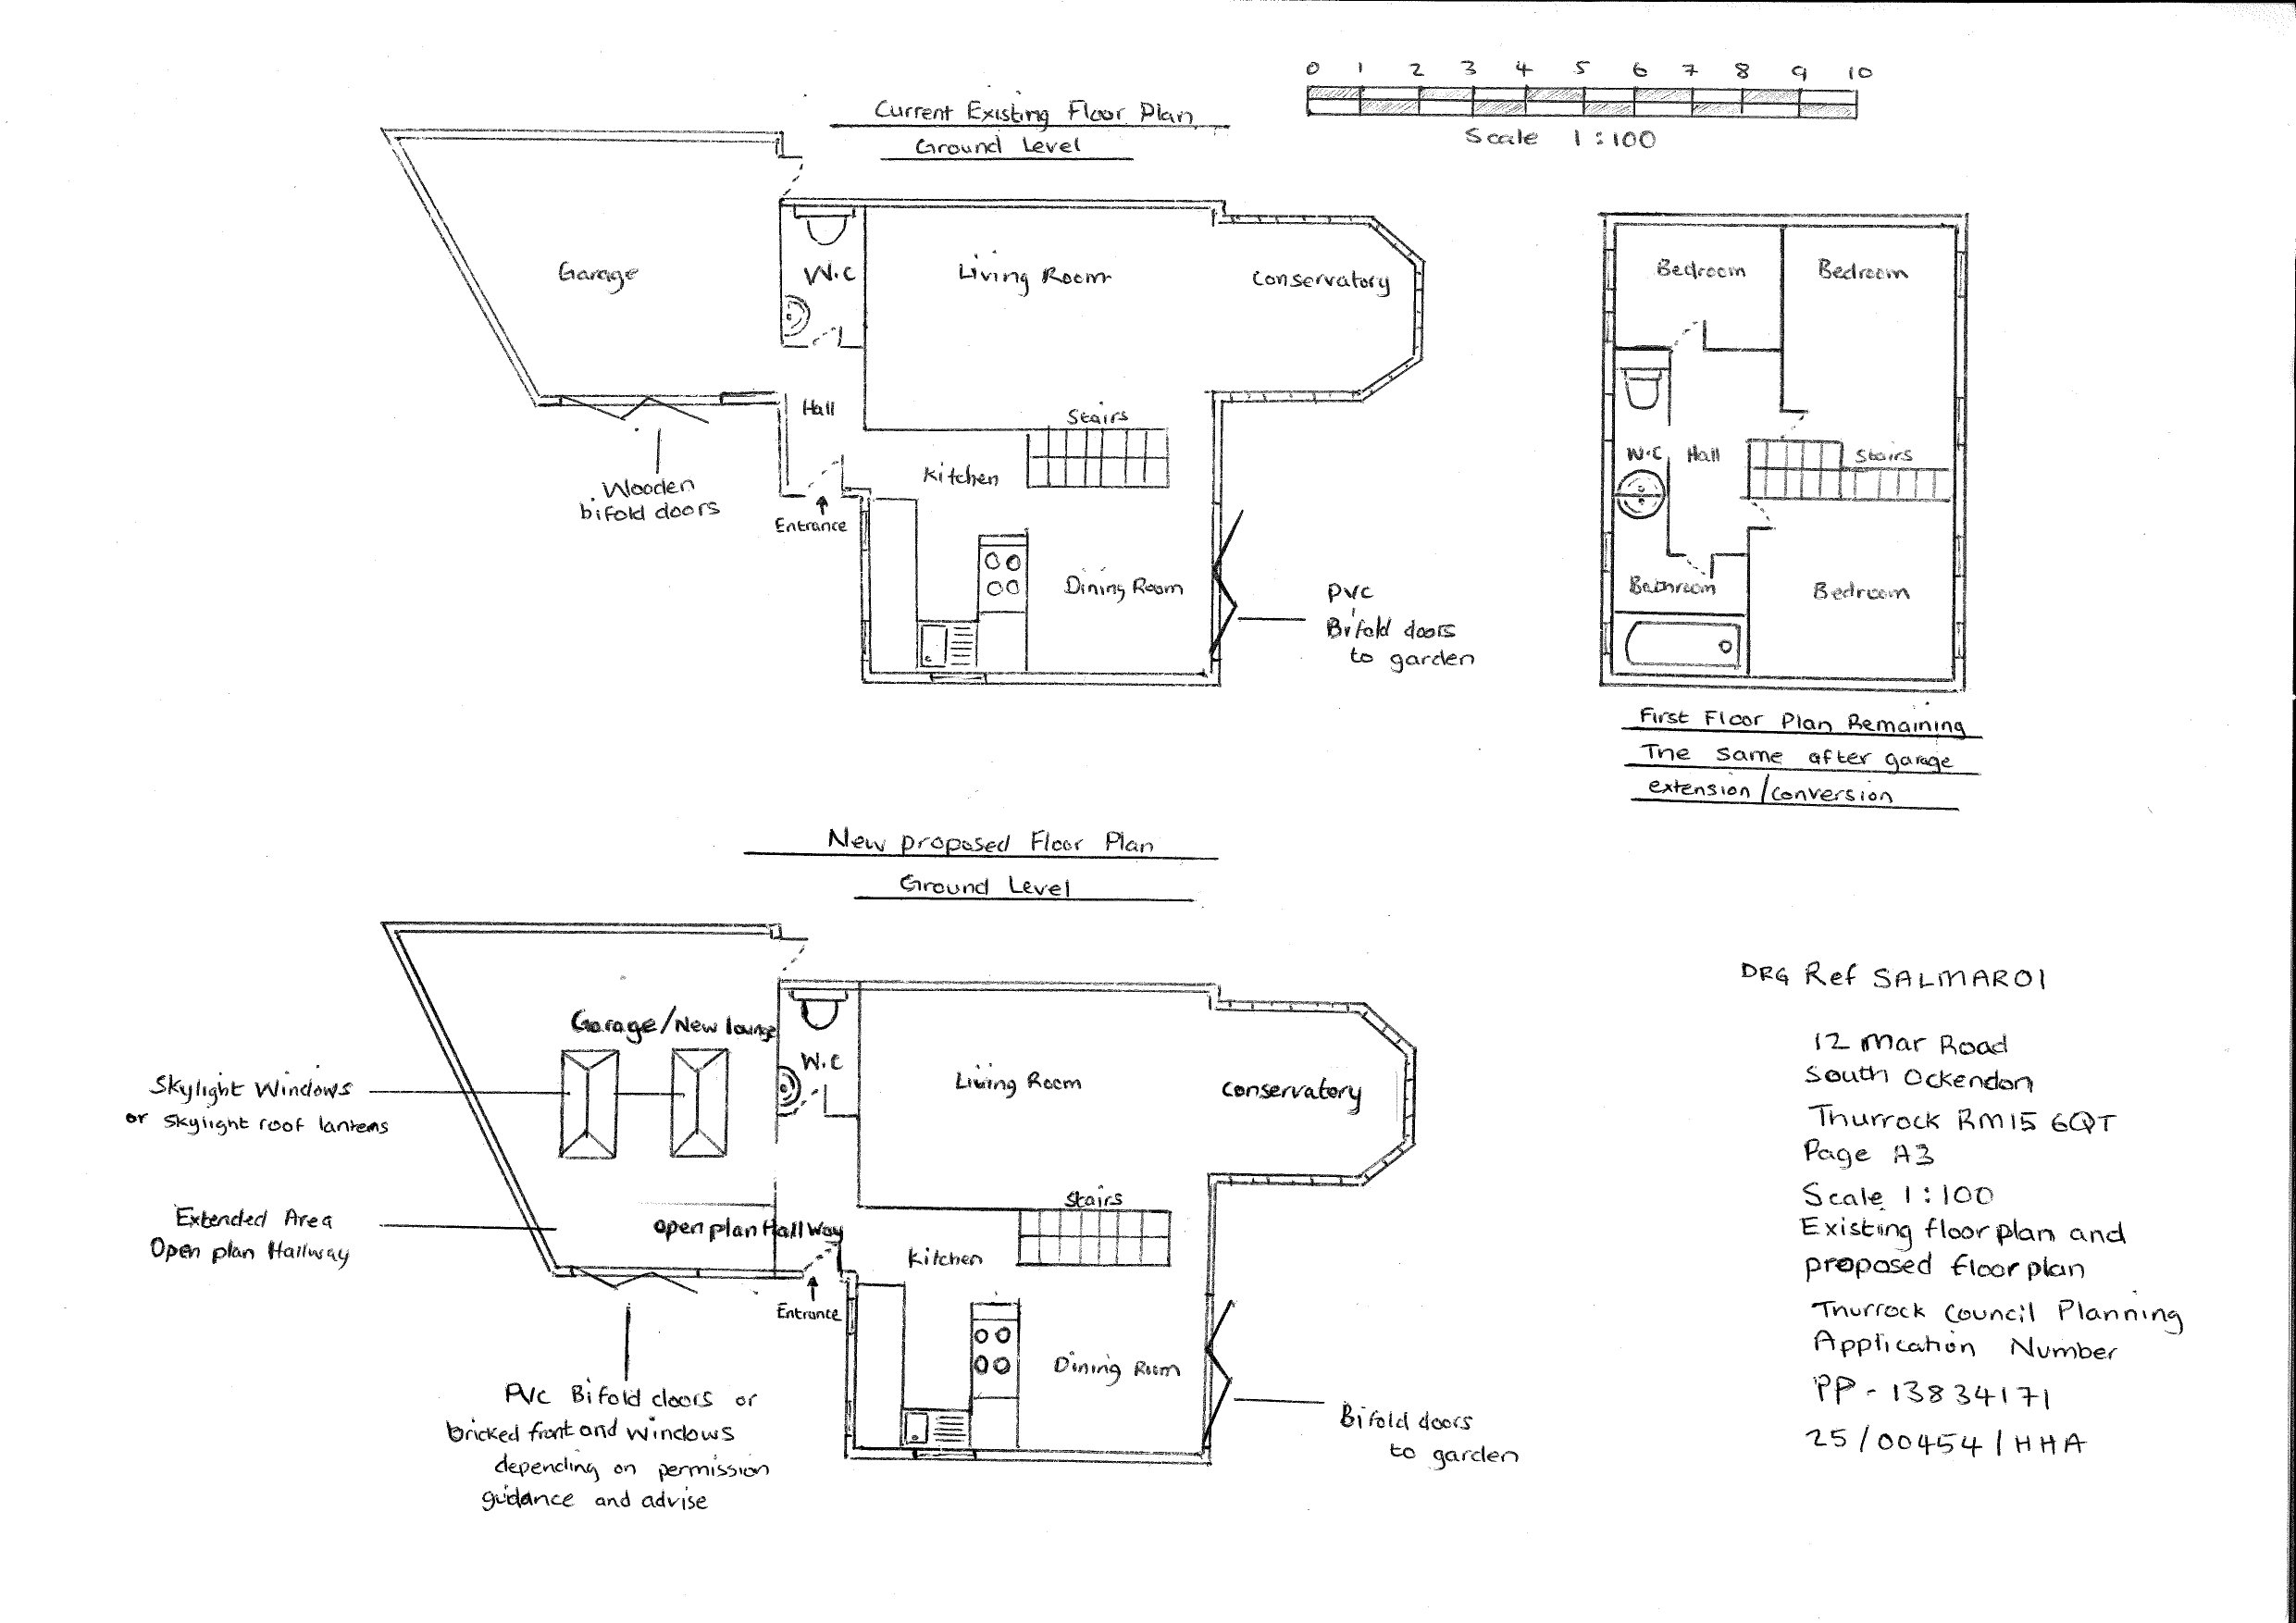 0 1 2 3 4 5 6 7 8 9 10
Scale 1:100
Current Existing Floor Plan
Ground Level
Garage
W.C
Living Room
Conservatory
Hall
Stairs
Kitchen
Entrance
Dining Room
Wooden
bifold doors
PVC
Bifold doors
to garden
Bedroom
Bedroom
W.C
Hall
Stairs
Bathroom
Bedroom
First Floor Plan Remaining
The same after garage
extension/conversion
New proposed Floor Plan
Ground Level
Garage/New lounge
W.C
Living Room
Conservatory
Skylight Windows
or skylight roof lanterns
Extended Area
Open plan Hallway
Open plan HallWay
Stairs
Kitchen
Entrance
Dining Room
PVC Bifold doors or
bricked front and windows
depending on permission
guidance and advise
Bifold doors
to garden
DRG Ref SALMAR01
12 Mar Road
South Ockendon
Thurrock RM15 6QT
Page A3
Scale 1:100
Existing floorplan and
proposed floorplan
Thurrock Council Planning
Application Number
PP-13834171
25/00454/HHA